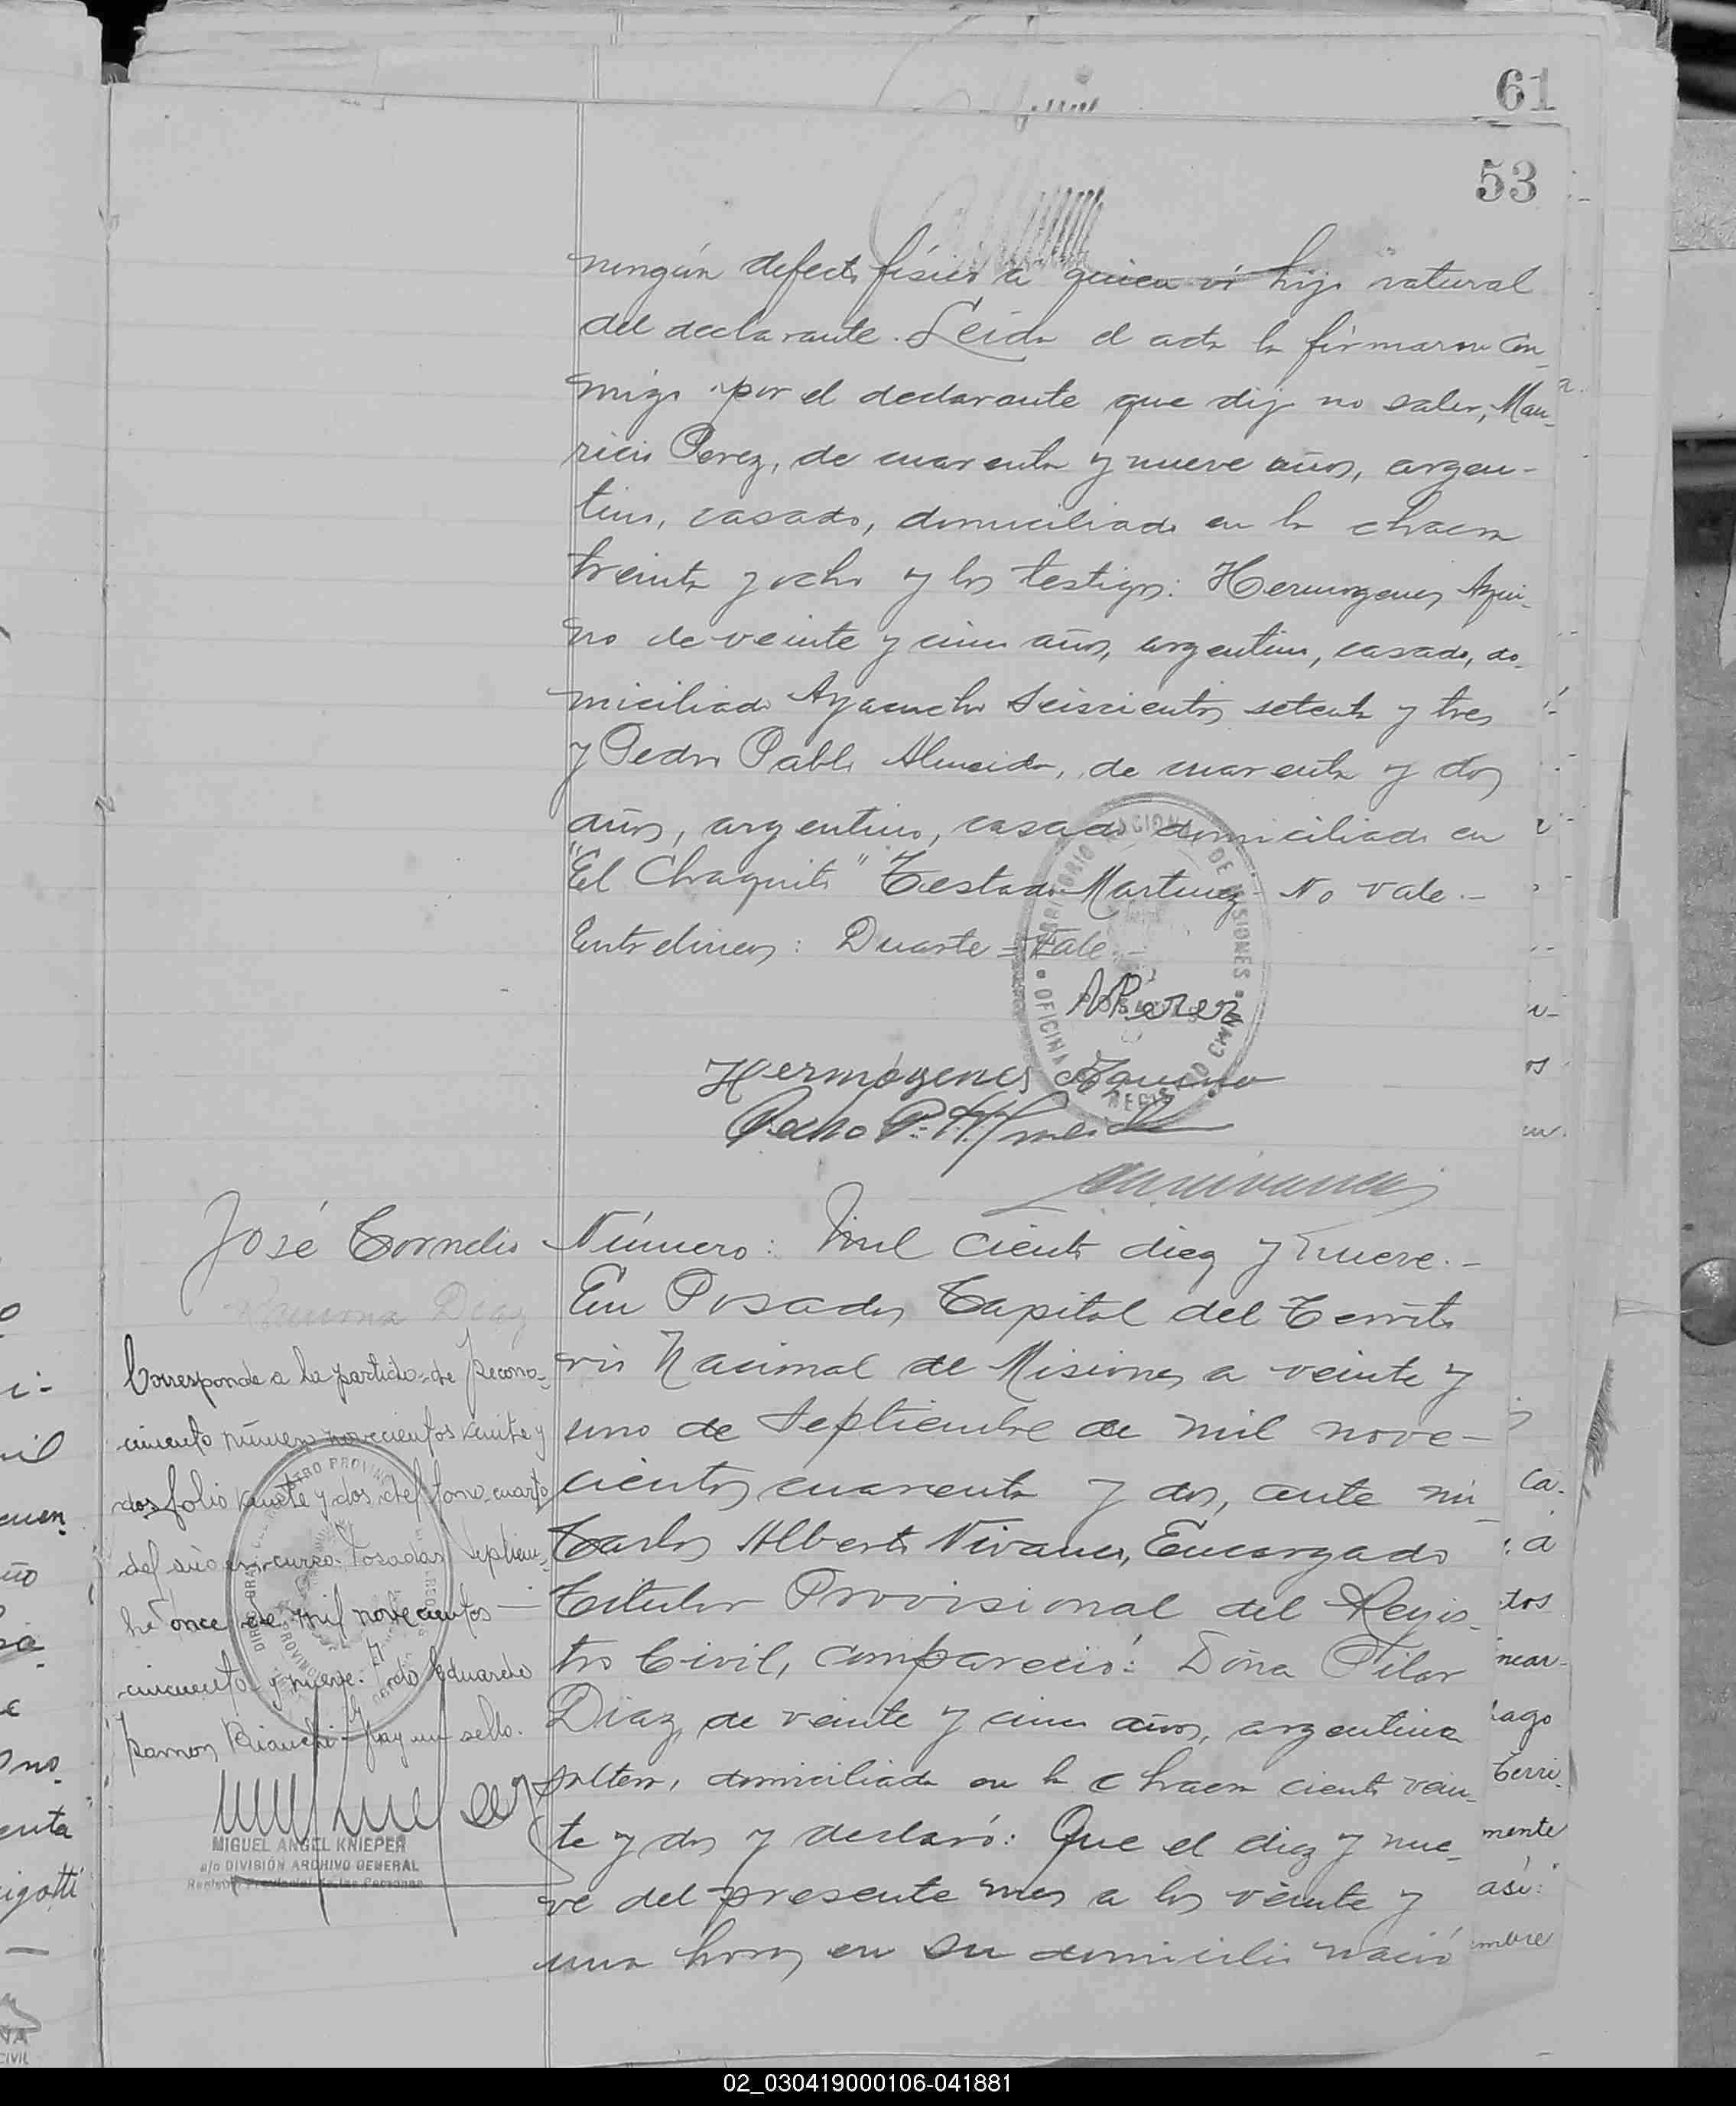 61
53
ningún defecto físico a quien ví hijo natural
del declarante. Leida el acta la firmaron con
migo por el declarante que dijo no saber, Mau
ricio Perez, de cuarenta y nueve años, argen-
tino, casado, domiciliado en la chacra
treinta y ocho y los testigos: Hermogenes Aqui-
no de veinte y cinco años, argentino, casado, do-
miciliado Ayacucho seiscientos setenta y tres
y Pedro Pablo Almeida, de cuarenta y dos
años, argentino, casado domiciliado en
"El Chaquito" Testado Martinez No vale.-
Entrelineas: Duarte = Vale.-
MPerez
Hermógenes Aquino
Pedro P. Almeida
José Cornelio
Ramona Diaz
Corresponde a la partida de recono-
cimiento número novecientos veinte y
dos folio veinte y dos del tomo cuarto
del año en curso. Posadas septiem-
bre once de mil novecientos
cincuenta y nueve. Fdo Eduardo
Ramon Bianchi - Hay un sello.
MIGUEL ANGEL KNIEPER
a/c DIVISIÓN ARCHIVO GENERAL
Registro Provincial de las Personas
Número: Mil ciento diez y nueve.-
En Posadas Capital del Territo
rio Nacional de Misiones a veinte y
uno de Septiembre de mil nove-
cientos cuarenta y dos, ante mi
Carlos Alberto Vivanco, Encargado
Titular Provisional del Regis-
tro Civil, compareció: Doña Pilar
Diaz, de veinte y cinco años, argentina
soltera, domiciliada en la chacra ciento vein-
te y dos y declaró: Que el diez y nue-
ve del presente mes a las veinte y
una horas en su domicilio nació
02_030419000106-041881